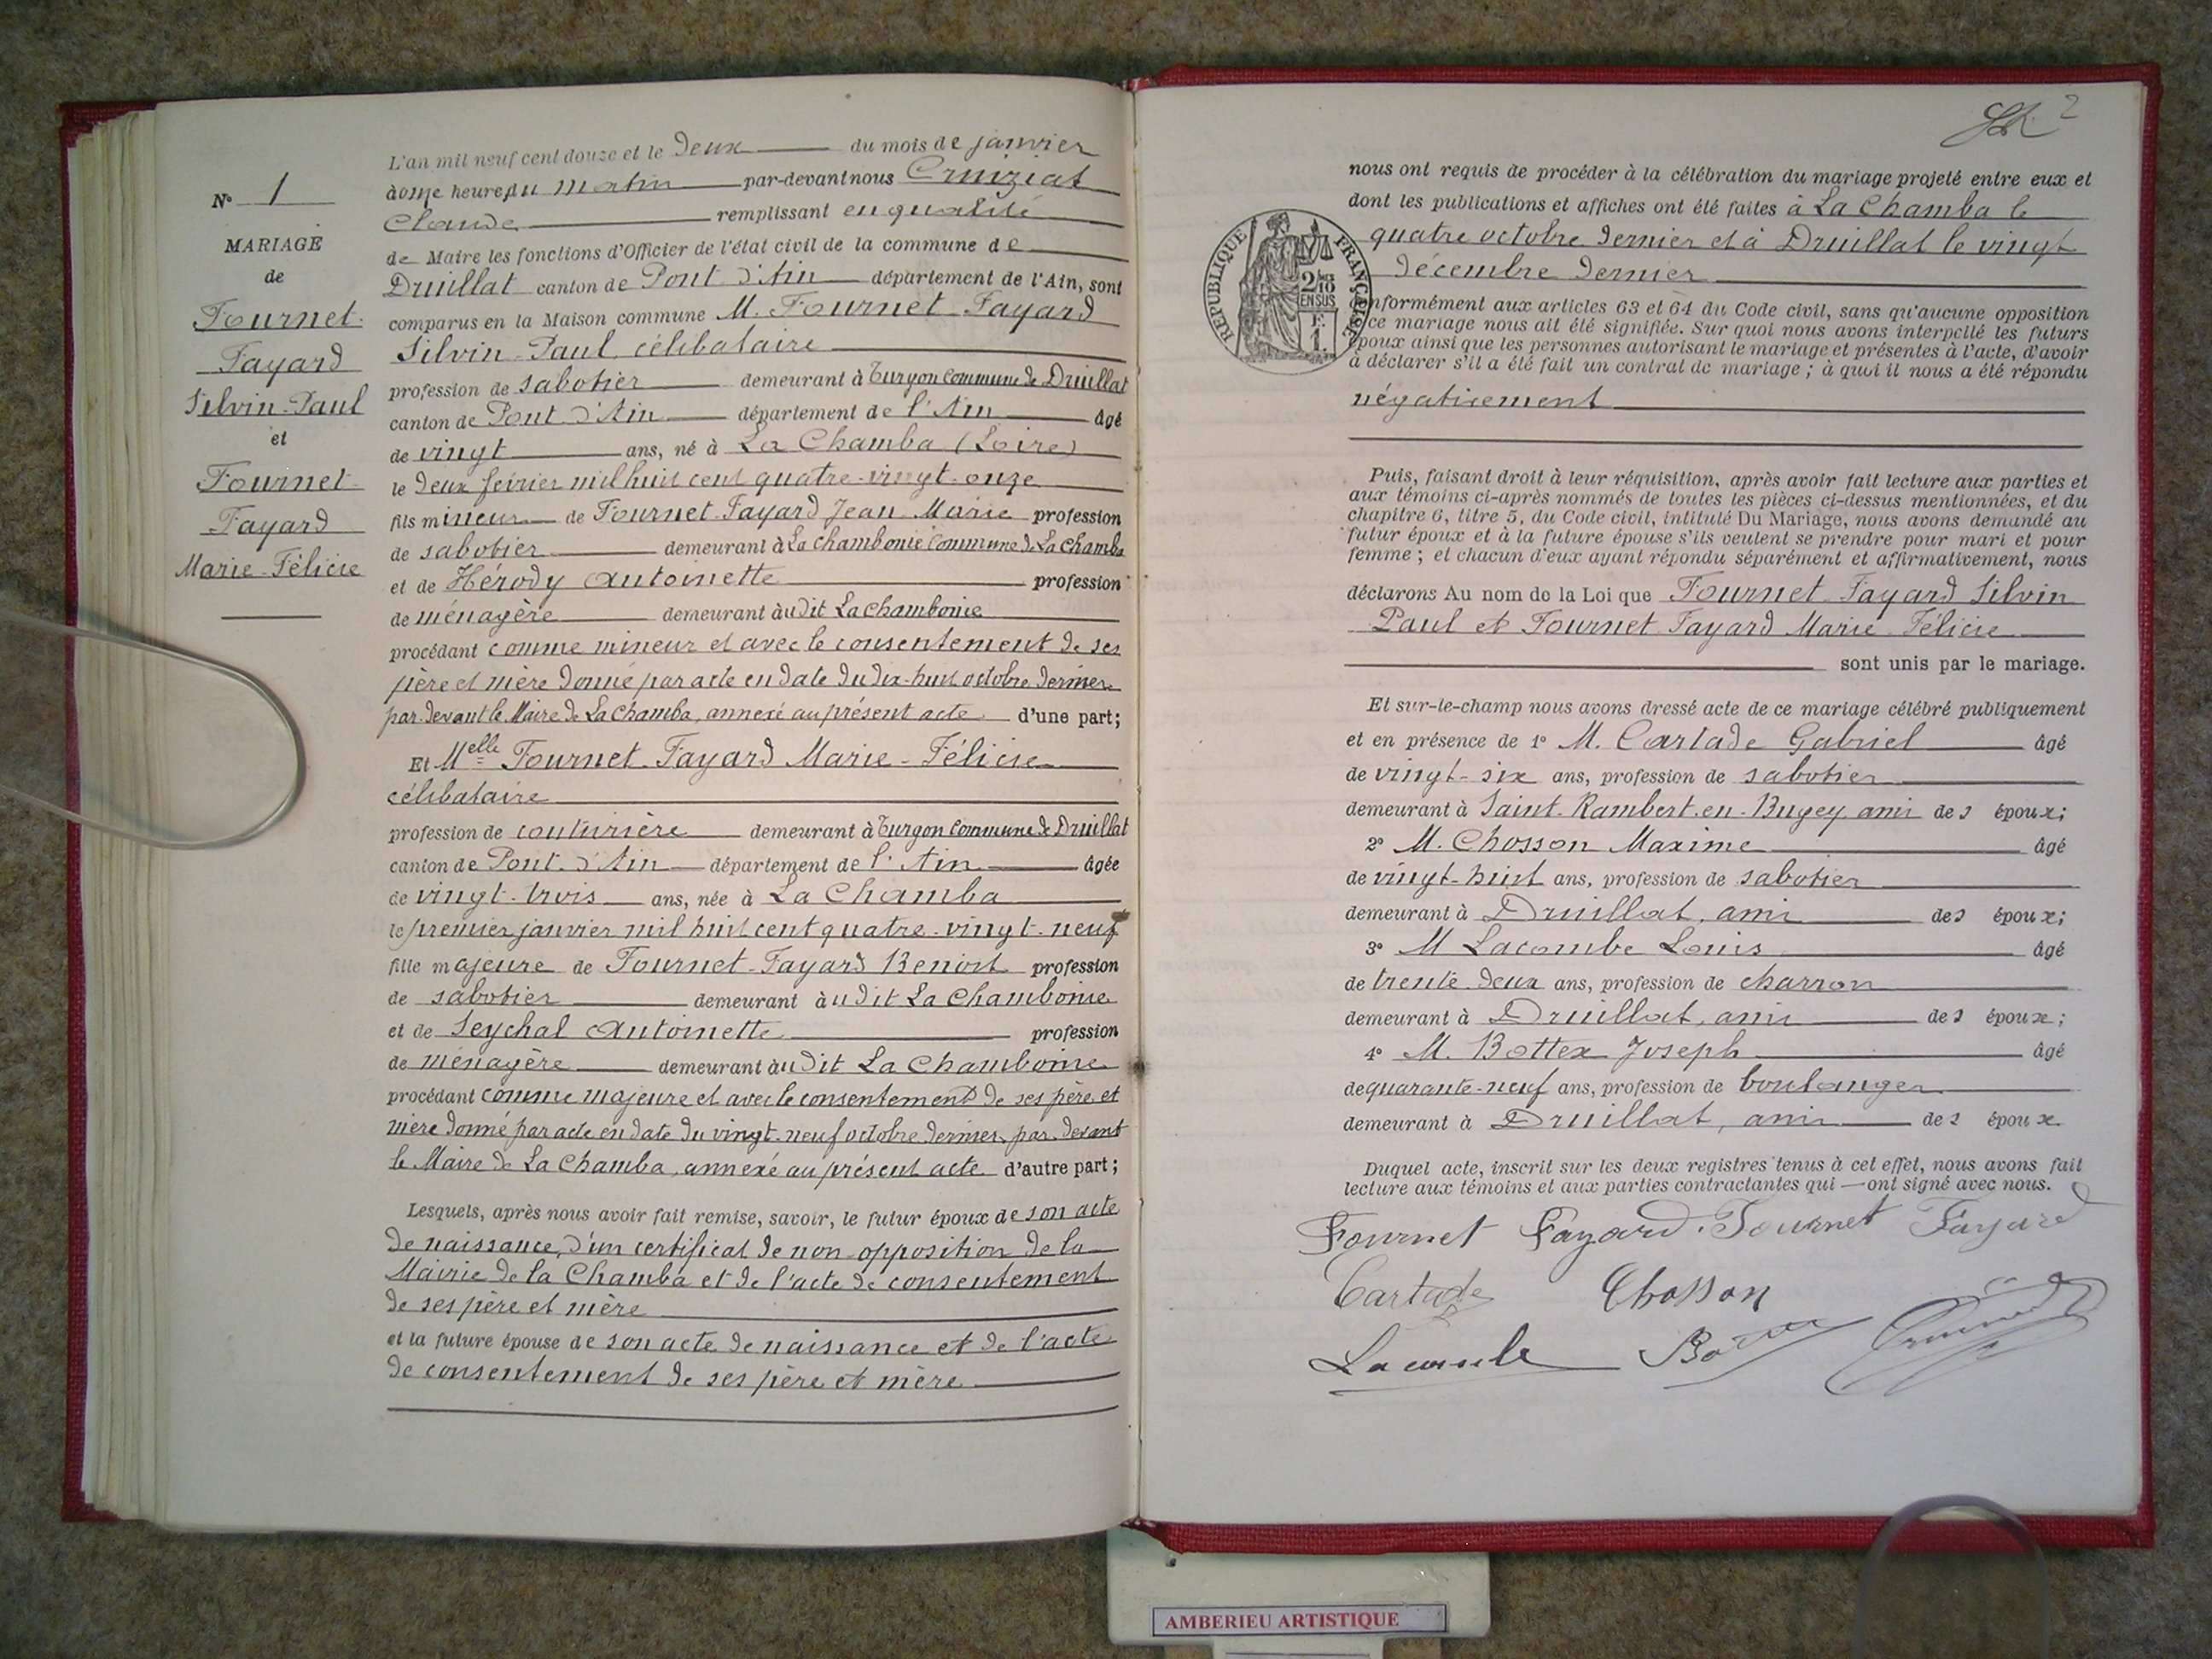 N° 1
MARIAGE
de
Fournet-
Fayard
Silvin-Paul
et
Fournet-
Fayard
Marie-Félicie
L'an mil neuf cent douze et le deux du mois de janvier
à onze heures du matin par-devant nous Cruiziat
Claude remplissant en qualité
de Maire les fonctions d'Officier de l'état civil de la commune de
Druillat canton de Pont-d'Ain département de l'Ain, sont
comparus en la Maison commune M. Fournet-Fayard
Silvin-Paul, célibataire
profession de sabotier demeurant à Turgon Commune de Druillat
canton de Pont-d'Ain département de l'Ain âgé
de vingt ans, né à La Chamba (Loire)
le deux février mil huit cent quatre-vingt-onze
fils mineur de Fournet-Fayard Jean-Marie profession
de sabotier demeurant à La Chambonie Commune de La Chamba
et de Hérody Antoinette profession
de ménagère demeurant à udit La Chambonie
procédant comme mineur et avec le consentement de ses
père et mère donné par acte en date du dix-huit octobre dernier
par-devant le Maire de La Chamba, annexé au présent acte d'une part;
Et Melle Fournet-Fayard Marie-Félicie
célibataire
profession de couturière demeurant à Turgon Commune de Druillat
canton de Pont-d'Ain département de l'Ain âgée
de vingt-trois ans, née à La Chamba
le premier janvier mil huit cent quatre-vingt-neuf
fille majeure de Fournet-Fayard Benoit profession
de sabotier demeurant à udit La Chambonie
et de Seychal Antoinette profession
de ménagère demeurant à udit La Chambonie
procédant comme majeure et avec le consentement de ses père et
mère donné par acte en date du vingt-neuf octobre dernier, par-devant
le Maire de La Chamba, annexé au présent acte d'autre part;
Lesquels, après nous avoir fait remise, savoir, le futur époux de son acte
de naissance, d'un certificat de non-opposition de la
Mairie de la Chamba et de l'acte de consentement
de ses père et mère
et la future épouse de son acte de naissance et de l'acte
de consentement de ses père et mère
2
nous ont requis de procéder à la célébration du mariage projeté entre eux et
dont les publications et affiches ont été faites à La Chamba le
quatre octobre dernier et à Druillat le vingt
décembre dernier
RÉPUBLIQUE FRANÇAISE
2/10 EN SUS
F. 1.
conformément aux articles 63 et 64 du Code civil, sans qu'aucune opposition
à ce mariage nous ait été signifiée. Sur quoi nous avons interpellé les futurs
époux ainsi que les personnes autorisant le mariage et présentes à l'acte, d'avoir
à déclarer s'il a été fait un contrat de mariage ; à quoi il nous a été répondu
négativement
Puis, faisant droit à leur réquisition, après avoir fait lecture aux parties et
aux témoins ci-après nommés de toutes les pièces ci-dessus mentionnées, et du
chapitre 6, titre 5, du Code civil, intitulé Du Mariage, nous avons demandé au
futur époux et à la future épouse s'ils veulent se prendre pour mari et pour
femme ; et chacun d'eux ayant répondu séparément et affirmativement, nous
déclarons Au nom de la Loi que Fournet-Fayard Silvin
Paul et Fournet-Fayard Marie-Félicie
sont unis par le mariage.
Et sur-le-champ nous avons dressé acte de ce mariage célébré publiquement
et en présence de 1° M. Cartade Gabriel âgé
de vingt-six ans, profession de sabotier
demeurant à Saint-Rambert-en-Bugey, ami des époux;
2° M. Chosson Maxime âgé
de vingt-huit ans, profession de sabotier
demeurant à Druillat, ami des époux;
3° M Lacombe Louis âgé
de trente-deux ans, profession de charron
demeurant à Druillat, ami des époux;
4° M. Bottex Joseph âgé
de quarante-neuf ans, profession de boulanger
demeurant à Druillat, ami des époux.
Duquel acte, inscrit sur les deux registres tenus à cet effet, nous avons fait
lecture aux témoins et aux parties contractantes qui ont signé avec nous.
Fournet Fayard. Fournet Fayard
Cartade Chosson
Lacombe
AMBERIEU ARTISTIQUE